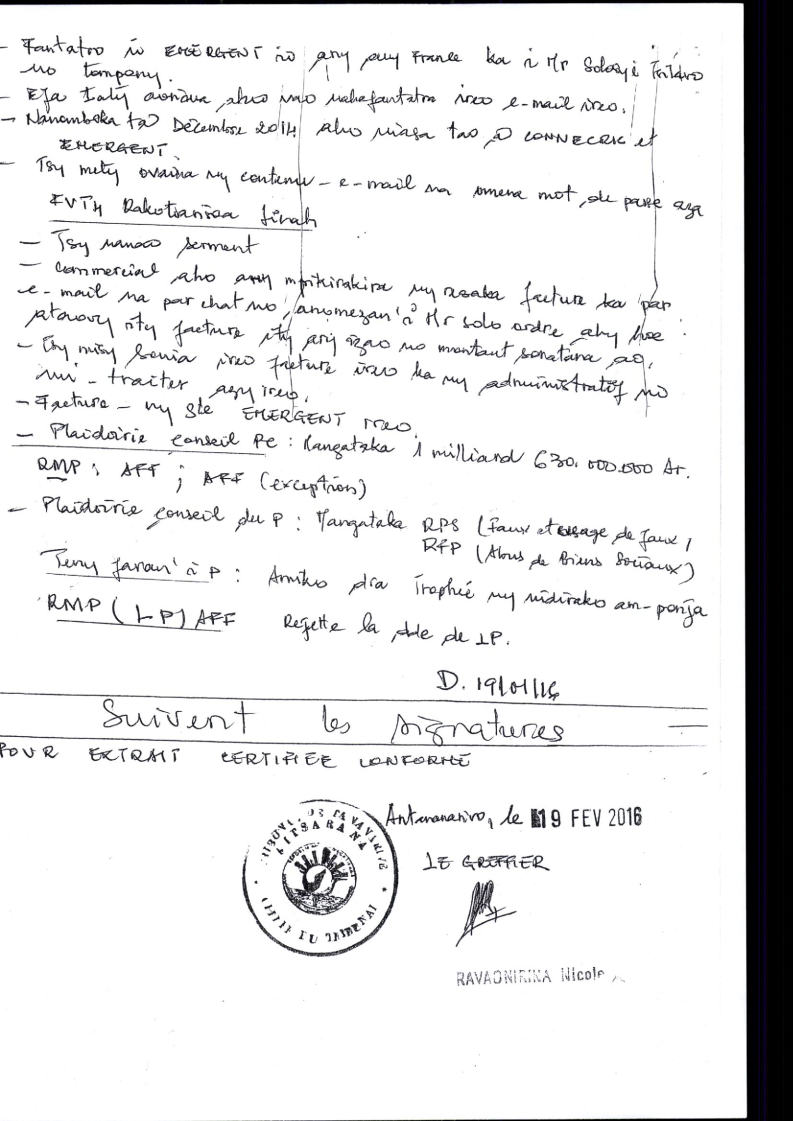 - Fantatro io EMERGENT io any any France ka i Mr Solo sy i
no tompony.
- Efa taty aoriana aho vao nahafantatra ireo e-mail ireo.
- Nanomboka tao Décembre 2014 aho niasa tao, CONNECTIC et
EMERGENT.
- Tsy mety ovaina ny contenu-e-mail na omena mot de passe aza
EVTH Rakotoarisoa Jinah
- Tsy nanao serment
- Commercial aho any mpikirakira ny resaka facture ka par
e-mail na par chat no, anomezan'i Mr Solo ordre ahy hoe
ataovy ity facture ity any izao no montant sonatana ao.
- Tsy misy sonia ireo facture ireo ka ny administratif no
mi-traiter azy ireo.
- Facture-ny Sté EMERGENT ireo.
- Plaidoirie conseil PC : Mangataka 1 milliard 630.000.000 Ar.
RMP ; AFF ; AFF (exception)
- Plaidoirie conseil du P : Mangataka RPS (Faux et usage de faux)
RFP (Abus de Biens Sociaux)
Teny faran'i P : Amiko dia trophée ny nidirako am-ponja
RMP (LP) AFF Rejette la dde de LP.
D. 19/01/16
Suivent les signatures
POUR EXTRAIT CERTIFIEE CONFORME
Antananarivo, le 19 FEV 2016
LE GREFFIER
RAVAONIRINA Nicole